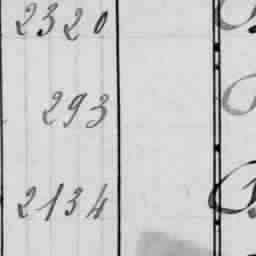 2320
293
2134